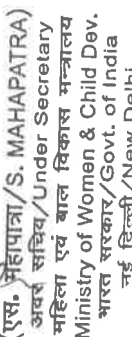 (एस. महापात्रा/S. MAHAPATRA)
अवर सचिव/Under Secretary
महिला एवं बाल विकास मन्त्रालय
Ministry of Women & Child Dev.
भारत सरकार/Govt. of India
नई दिल्ली/New Delhi